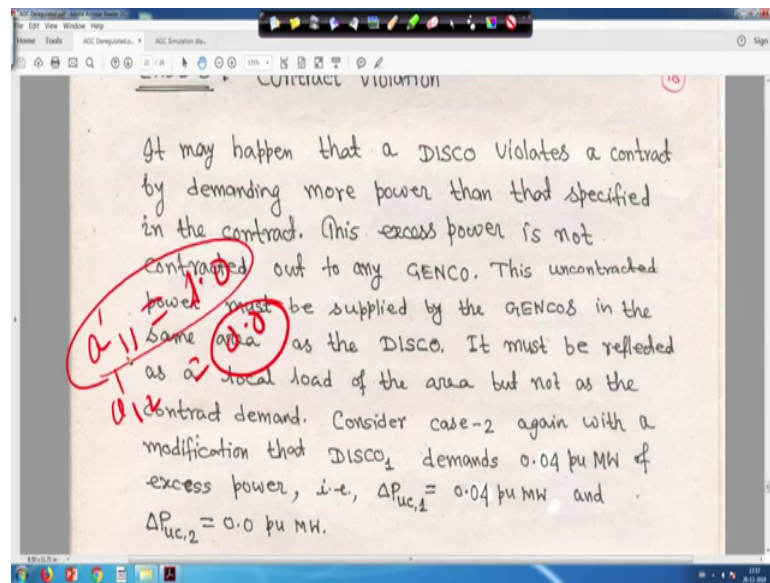 AGC Deregulated.pdf - Adobe Acrobat Reader DC
File Edit View Window Help
Home Tools AGC Deregulated.p... × AGC Simulation dia... Sign
22 / 24 175%
Contract Violation
It may happen that a DISCO violates a contract
by demanding more power than that specified
in the contract. This excess power is not
contracted out to any GENCO. This uncontracted
power must be supplied by the GENCOS in the
same area as the DISCO. It must be reflected
as a local load of the area but not as the
contract demand. Consider case-2 again with a
modification that DISCO1 demands 0.04 pu MW of
excess power, i.e., ΔPuc,1 = 0.04 pu MW and
ΔPuc,2 = 0.0 pu MW.
8.50 x 11.71 in